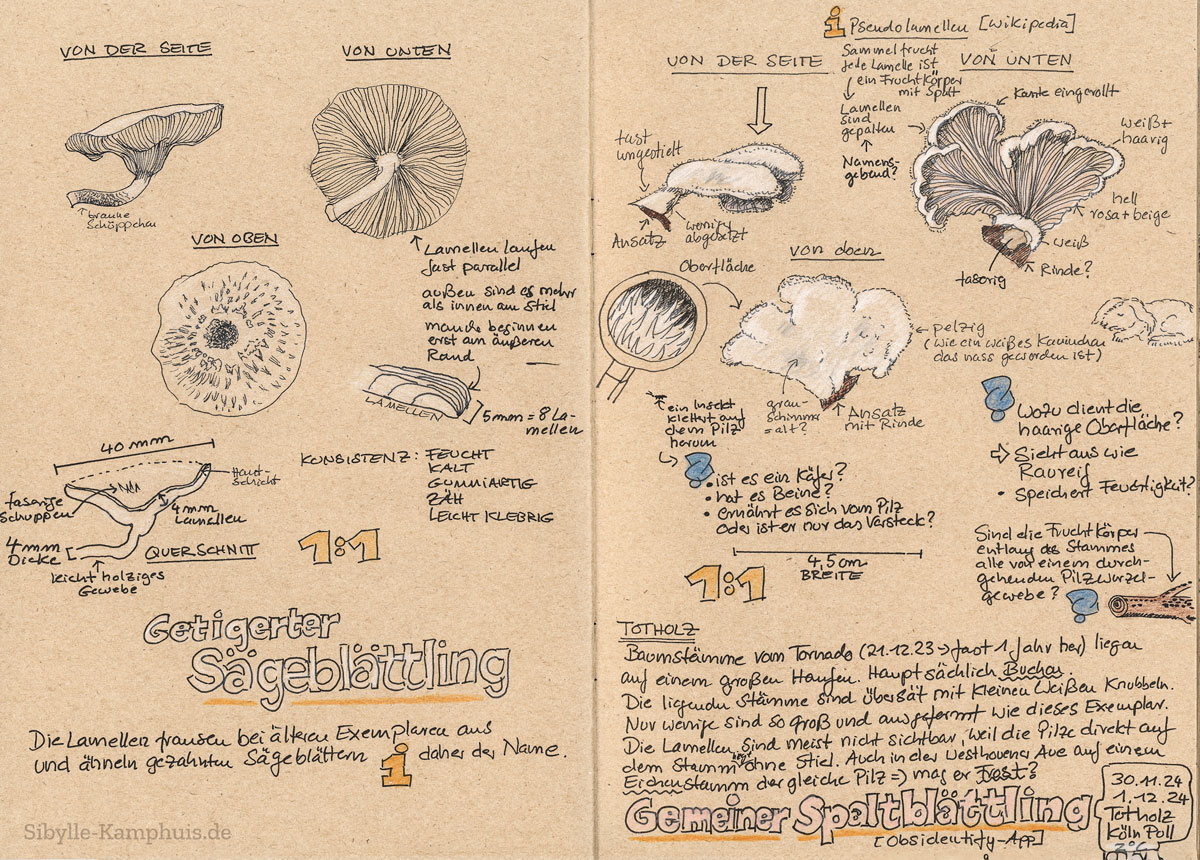 VON DER SEITE
VON UNTEN
braune
Schüppchen
VON OBEN
Lamellen laufen
fast parallel
außen sind es mehr
als innen am Stiel
manche beginnen
erst am äußeren
Rand
LAMELLEN
5mm = 8 La-
mellen
40 mm
Haut-
schicht
faserige
Schuppen
4mm
Lamellen
4mm
Dicke
QUERSCHNITT
leicht holziges
Gewebe
KONSISTENZ: FEUCHT
KALT
GUMMIARTIG
ZÄH
LEICHT KLEBRIG
1:1
Getigerter
Sägeblättling
Die Lamellen fransen bei älteren Exemplaren aus
und ähneln gezahnten Sägeblättern
i daher der Name.
Sibylle-Kamphuis.de
i Pseudolamellen [Wikipedia]
Sammelfrucht
jede Lamelle ist
ein Fruchtkörper
mit Spalt
Lamellen
sind
gespalten
Namens-
gebend?
VON DER SEITE
VON UNTEN
Kante eingerollt
weiß +
haarig
hell
rosa + beige
weiß
Rinde?
faserig
fast
ungestielt
Ansatz
wenig
abgesetzt
VON OBEN
Oberfläche
pelzig
(wie ein weißes Kaninchen
das nass geworden ist)
grau-
schimmer
= alt?
Ansatz
mit Rinde
ein Insekt
klettert auf
dem Pilz
herum
? • ist es ein Käfer?
• hat es Beine?
• ernährt es sich vom Pilz
oder ist er nur das Versteck?
? Wozu dient die
haarige Oberfläche?
⇨ Sieht aus wie
Raureif
• Speichert Feuchtigkeit?
4,5cm
BREITE
1:1
Sind die Fruchtkörper
entlang des Stammes
alle von einem durch-
gehenden Pilzwurzel-
gewebe? ?
TOTHOLZ
Baumstämme vom Tornado (21.12.23 → fast 1 Jahr her) liegen
auf einem großen Haufen. Hauptsächlich Buchen.
Die liegenden Stämme sind übersät mit kleinen weißen Knubbeln.
Nur wenige sind so groß und ausgeformt wie dieses Exemplar.
Die Lamellen sind meist nicht sichtbar, weil die Pilze direkt auf
dem Stamm ohne Stiel. Auch in der Westhovener Aue auf einem
Eichenstamm der gleiche Pilz => mag er Frost?
Gemeiner Spaltblättling
[Obsidentify-App]
30.11.24
1.12.24
Totholz
Köln Poll